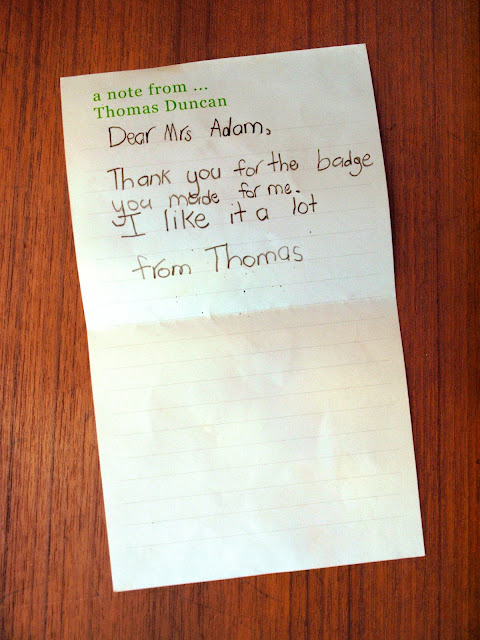 a note from ...
Thomas Duncan
Dear Mrs Adam,
Thank you for the badge
you made for me.
I like it a lot
from Thomas